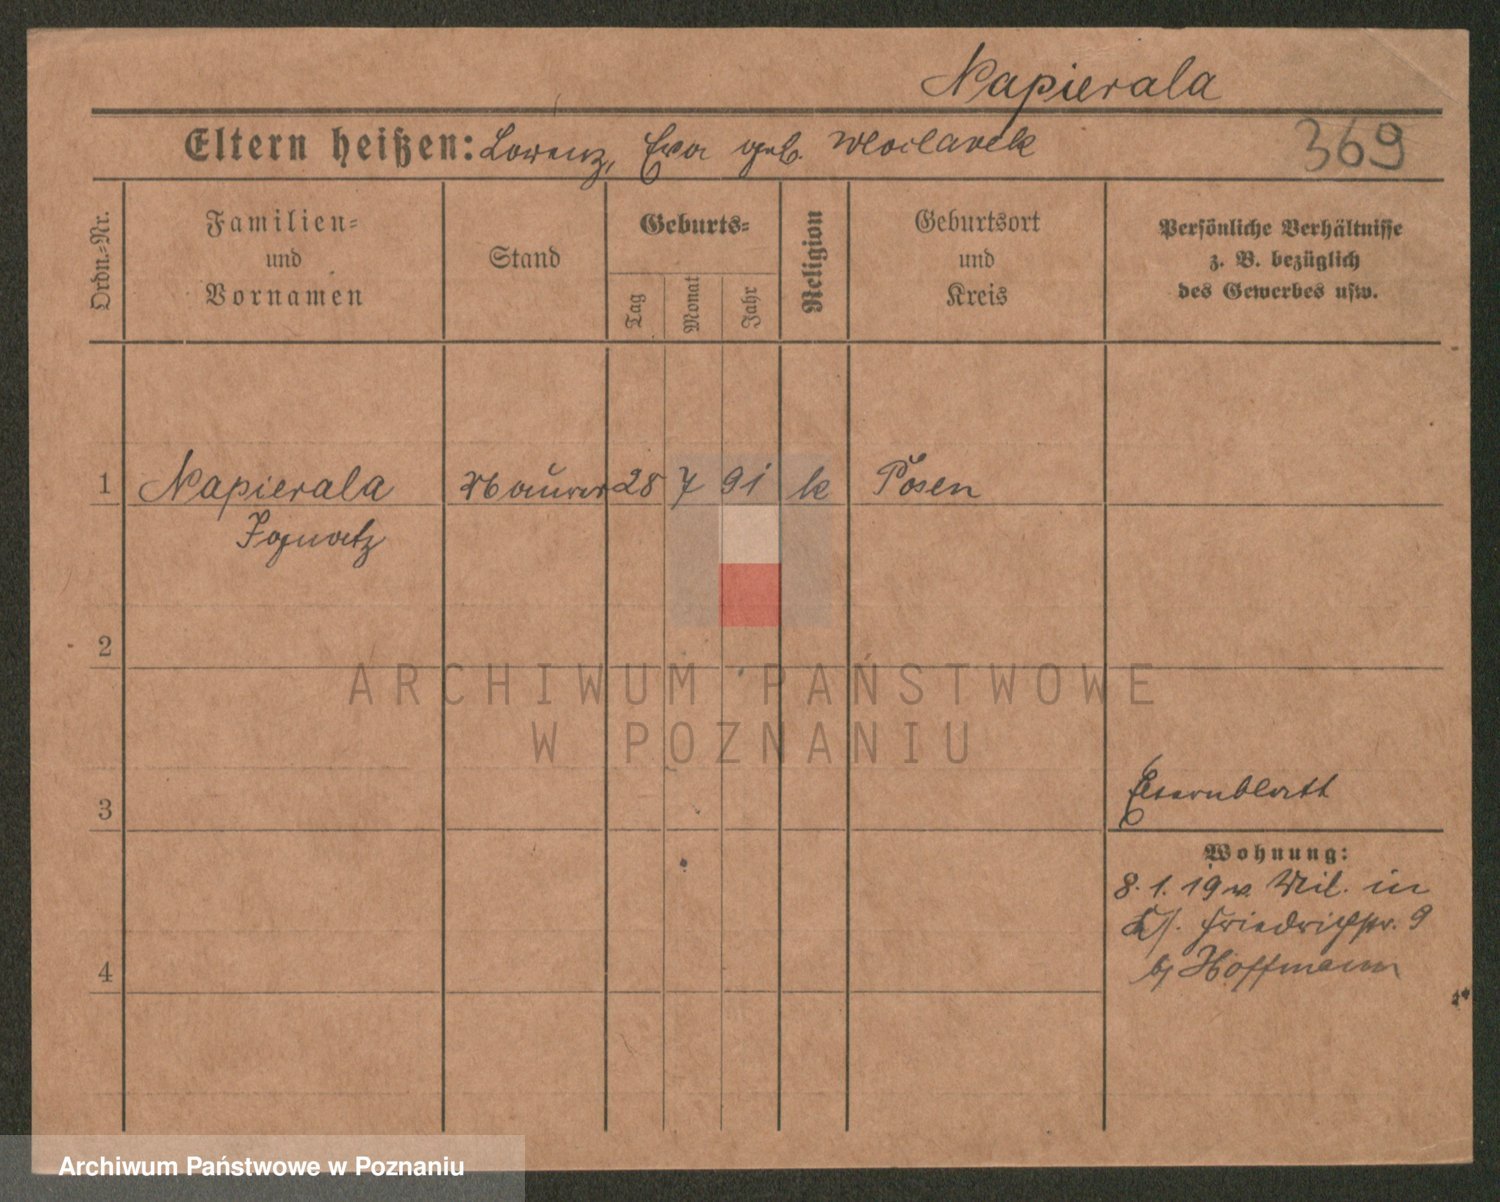 Napierala
Eltern heißen: Lorenz, Eva geb. Wloclarek
369
Ordn.-Nr.
Familien-
und
Vornamen
Stand
Geburts-
Tag
Monat
Jahr
Religion
Geburtsort
und
Kreis
Persönliche Verhältnisse
z. B. bezüglich
des Gewerbes usw.
1 Napierala Maurer 28 7 91 k Posen
Ignatz
2
ARCHIWUM PAŃSTWOWE
W POZNANIU
Elternblatt
3
Wohnung:
8. 1. 19 v. Mil. in
Friedrichstr. 9
b/ Hoffmann
4
Archiwum Państwowe w Poznaniu